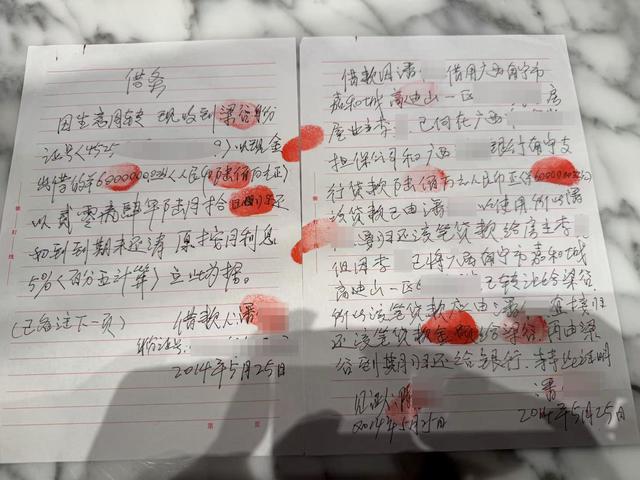 借条
因生意周转 现收到梁谷身份
证号(4525 9)以现金
出借的￥6000000.00(人民币陆佰万元正)
以贰零壹肆年陆月拾 日归还
如到到期未还清 愿按月利息
5%(百分五计算)立此为据。
(已备注下一页)
借款人潘
身份证号:
2014年5月25日
借款因潘 借用广西南宁市
嘉和城高迪山一区 房
屋业主李 已向在广西
担保公司和广西 银行南宁支
行贷款陆佰万元人民币正(￥6000000.00)
该贷款已由潘 以使用所以潘
要归还该笔贷款给房主李
但因李 已将广西南宁市嘉和城
高迪山一区 已转让给梁谷
所以该笔贷款应由潘 直接归
还该笔贷款金额给梁谷再由梁
谷到期归还给银行.特此证明
见证人:陈
2014年5月25日
潘
2014年5月25日